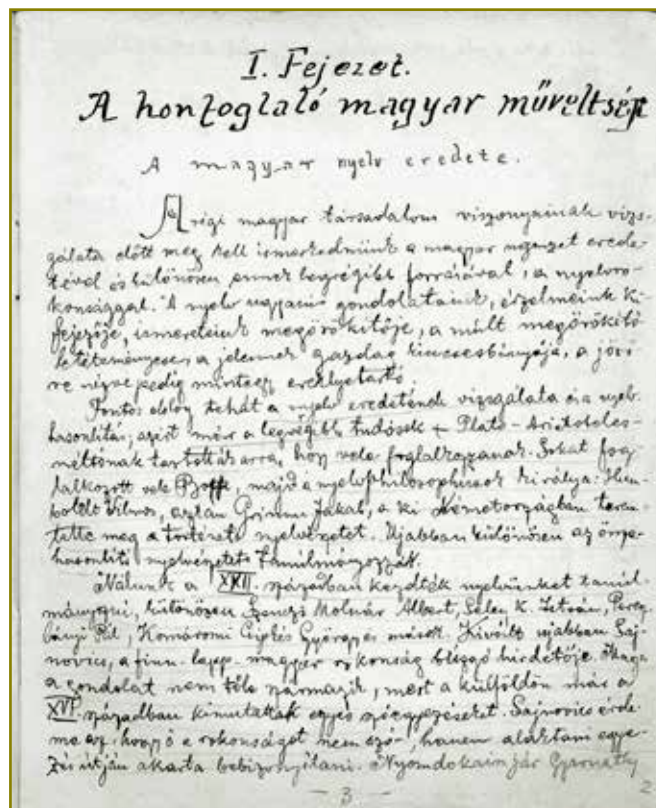 I. Fejezet.
A honfoglaló magyar műveltség
A magyar nyelv eredete.
A régi magyar társadalom viszonyainak vizs-
gálata előtt meg kell ismerkednünk a magyar nemzet erede-
tével és különösen ennek legrégibb forrásával, a nyelvro-
konsággal. A nyelv ugyanis gondolataink, érzelmeink ki-
fejezője, ismereteink megörökítője, a múlt megörökítő
letéteményese, a jelennek gazdag kincsesbányája, a jövő-
re nézve pedig mintegy ereklyetartó
Fontos dolog tehát a nyelv eredetének vizsgálata és a nyelv-
hasonlítás; azért már a legrégibb tudósok + Plato - Aristoteles -
méltónak tartották arra, hogy vele foglalkozzanak. Sokat fog-
lalkozott vele Bopp, majd a nyelvphilosophusok királya: Hum-
boldt Vilmos, aztán Grimm Jakab, a ki Németországban terem-
tette meg a történeti nyelvészetet. Ujabban különösen az össze-
hasonlító nyelvészetet tanulmányozzák.
Nálunk a XVII. században kezdték nyelvünket tanul-
mányozni, különösen Szenczi Molnár Albert, Geley K. István, Peres-
lényi Pál, Komáromi Csipkés György és mások. Kivált ujabban Saj-
novics, a finn-lapp-magyar rokonság buzgó hirdetője. Maga
a gondolat nem tőle származik, mert a külföldön már a
XVI. században kimutattak egyes szóegyezéseket. Sajnovics érde-
me az, hogy ő a rokonságot nem szó-, hanem alaktani egye-
zés útján akarta bebizonyítani. Nyomdokain jár Gyarmathy
- 3 -
2